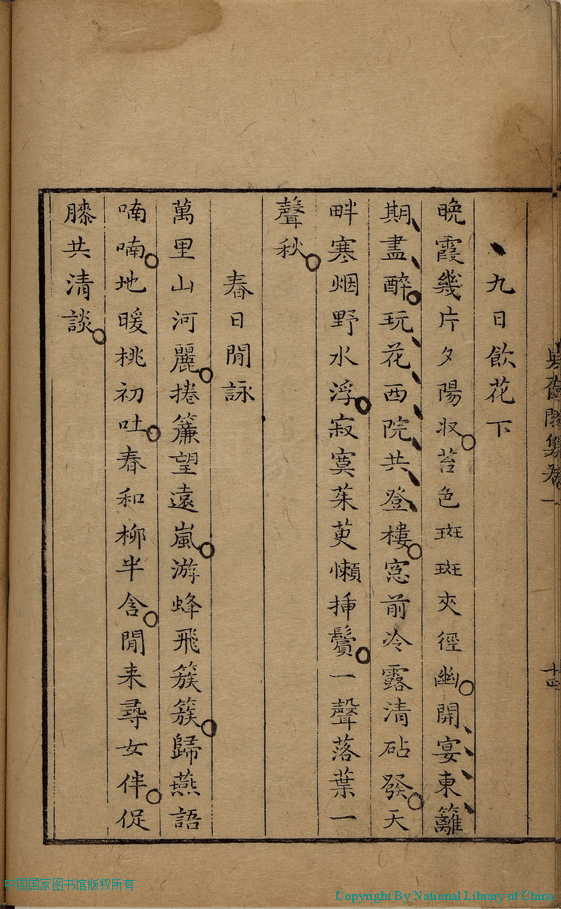 九日飲花下
晚霞幾片夕陽収苔色斑斑夾徑幽開宴東籬
期盡醉玩花西院共登樓窓前冷露清砧發天
畔寒烟野水浮寂寞茱萸懶揷鬢一聲落葉一
聲秋
春日閒詠
萬里山河麗捲簾望遠嵐游蜂飛簇簇歸燕語
喃喃地暖桃初吐春和柳半含閒来尋女伴促
膝共清談
十四
中国国家图书馆版权所有
Copyright By National Library of China